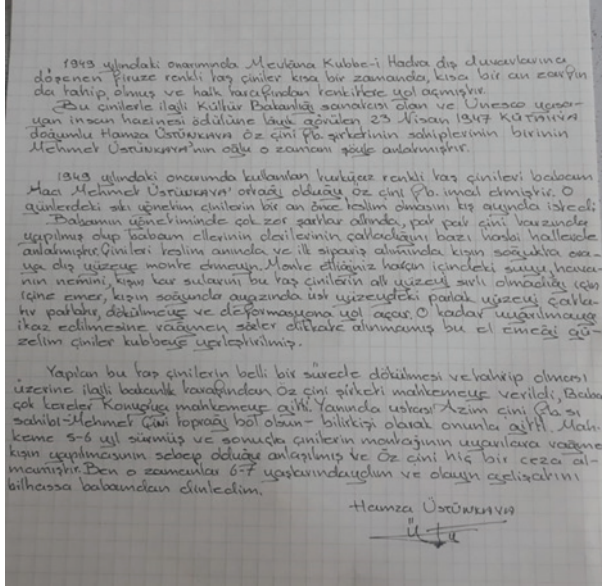 1949 yılındaki onarımında Mevlâna Kubbe-i Hadra dış duvarlarına
döşenen firuze renkli taş çiniler kısa bir zamanda, kısa bir an zarfın
da tahip, olmuş ve halk tarafından tenkitlere yol açmıştır.
Bu çinilerle ilgili Kültür Bakanlığı sanatcısı olan ve Unesco yaşa-
yan insan hazinesi ödülüne lâyık görülen 23 Nisan 1947 KÜTAHYA
doğumlu Hamza ÜSTÜNKAYA Öz Çini Fb. şirketinin sahiplerinin birinin
Mehmet ÜSTÜNKAYA'nın oğlu o zamanı şöyle anlatmıştır.
1949 yılındaki onarımda kullanılan turkuaz renkli taş çinileri babam
Hacı Mehmet ÜSTÜNKAYA' ortağı olduğu Öz çini Fb. imal etmiştir. O
günlerdeki sıkı yönetim çinilerin bir an önce teslim olmasını kış ayında istedi
Babamın yönetiminde çok zor şartlar altında, pat pat çini tarzında
yapılmış olup babam ellerinin derilerinin çatladığını bazı hasbi hallerde
anlatmıştır. Çinileri teslim anında ve ilk sipariş alımında kışın soğukta ora-
ya dış yüzeye monte etmeyin. Monte ettiğiniz harcın içindeki suyu, hava-
nın nemini, kışın kar sularını bu taş çinilerin alt yüzeyi sırlı olmadığı için
içine emer, kışın soğunda ayazında üst yüzeydeki parlak yüzeyi çatla-
tır patlatır, dökülmeye ve deformasyona yol açar. O kadar uyarılmaya
ikaz edilmesine rağmen sözler dikkate alınmamış bu el emeği gü-
zelim çiniler kubbeye yerleştirilmiş.
Yapılan bu taş çinilerin belli bir sürede dökülmesi ve tahrip olması
üzerine ilgili bakanlık tarafından Öz çini şirketi mahkemeye verildi, Baba
çok kereler Konya'ya mahkemeye gitti. Yanında ustası Azim Çini Fb. sı
sahibi-Mehmet Çini toprağı bol olsun- bilirkişi olarak onunla gitti. Mah-
keme 5-6 yıl sürmüş ve sonuçta çinilerin montajının uyarılara rağmen
kışın yapılmasının sebep olduğu anlaşılmış ve Öz çini hiç bir ceza al-
mamıştır. Ben o zamanlar 6-7 yaşlarındaydım ve olayın gelişatını
bilhassa babamdan dinledim.
Hamza ÜSTÜNKAYA